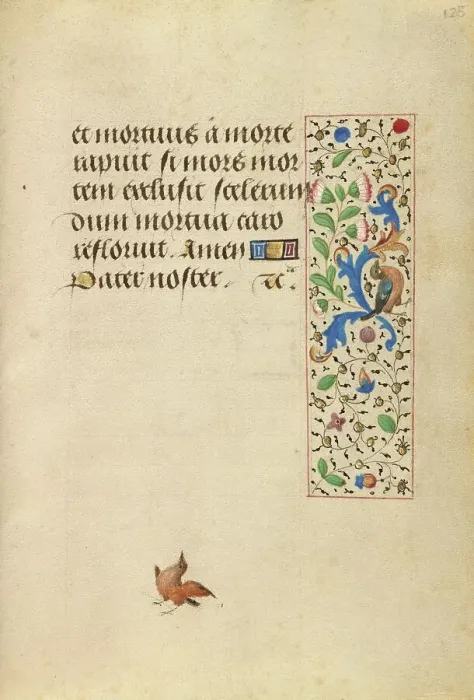 125
et mortuus a morte
rapuit si mors mor
tem exclusit scelerum
dum mortua caro
refloruit. Amen
Pater noster. &c.